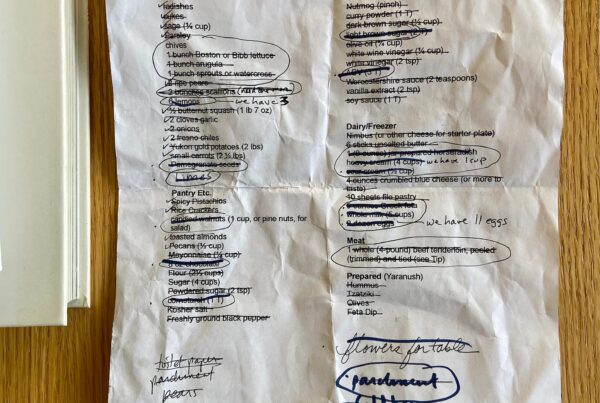 radishes
cukes
sage (¼ cup)
Parsley
chives
1 bunch Boston or Bibb lettuce
1 bunch arugula
1 bunch sprouts or watercress
ripe pears
2 bunches scallions
we have 3
½ butternut squash (1 lb 7 oz)
2 cloves garlic
2 onions
2 fresno chiles
Yukon gold potatoes (2 lbs)
small carrots (2 ½ lbs)
Pomegranate seeds
Limes
Pantry Etc.
Spicy Pistachios
Rice Crackers
candied walnuts (1 cup, or pine nuts, for
salad)
toasted almonds
Pecans (½ cup)
Mayonnaise (¼ cup)
8 oz chocolate
Flour (2½ cups)
Sugar (4 cups)
Powdered sugar (2 tbsp)
Cornstarch (1 T)
Kosher salt
Freshly ground black pepper
toilet paper
parchment
pears
Nutmeg (pinch)
curry powder (1 T)
dark brown sugar (½ cup)
light brown sugar (2 T)
olive oil (¼ cup)
white wine vinegar (¼ cup)
white vinegar (2 tsp)
Worcestershire sauce (2 teaspoons)
vanilla extract (2 tsp)
soy sauce (1 T)
Dairy/Freezer
Nimbus (or other cheese for starter plate)
6 sticks unsalted butter
prepared horseradish
heavy cream (4 cups) we have 1 cup
sour cream
4 ounces crumbled blue cheese (or more to
taste)
10 sheets filo pastry
Greek feta
whole milk (5 cups)
eggs we have 11 eggs
Meat
1 whole (4-pound) beef tenderloin, peeled
(trimmed) and tied (see Tip)
Prepared (Yaranush)
Hummus
Tzatziki
Olives
Feta Dip
flowers for table
parchment